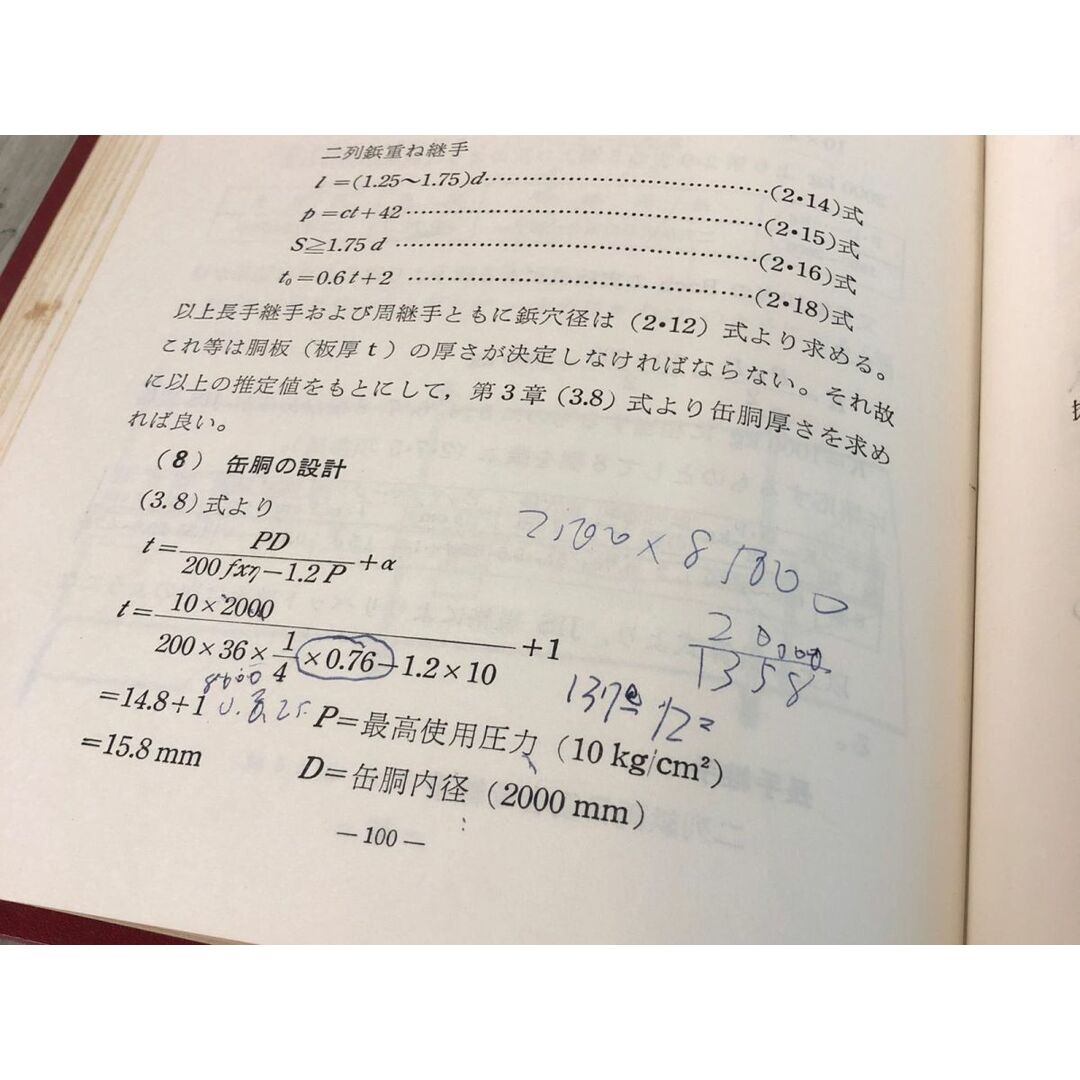 二列鋲重ね継手
l=(1.25～1.75)d……………………………(2•14)式
p=ct+42……………………………………(2•15)式
S≧1.75 d ……………………………………(2•16)式
t₀=0.6t+2 …………………………………(2•18)式
以上長手継手および周継手ともに鋲穴径は(2•12)式より求める。
これ等は胴板(板厚t)の厚さが決定しなければならない。それ故
に以上の推定値をもとにして,第3章(3.8)式より缶胴厚さを求め
れば良い。
(8) 缶胴の設計
(3.8)式より
t=PD/(200 fxη−1.2 P)+α
t=10×2000/(200×36×1/4×0.76−1.2×10)+1
=14.8+1
=15.8 mm
P=最高使用圧力(10 kg/cm²)
D=缶胴内径(2000 mm)
—100—
1358